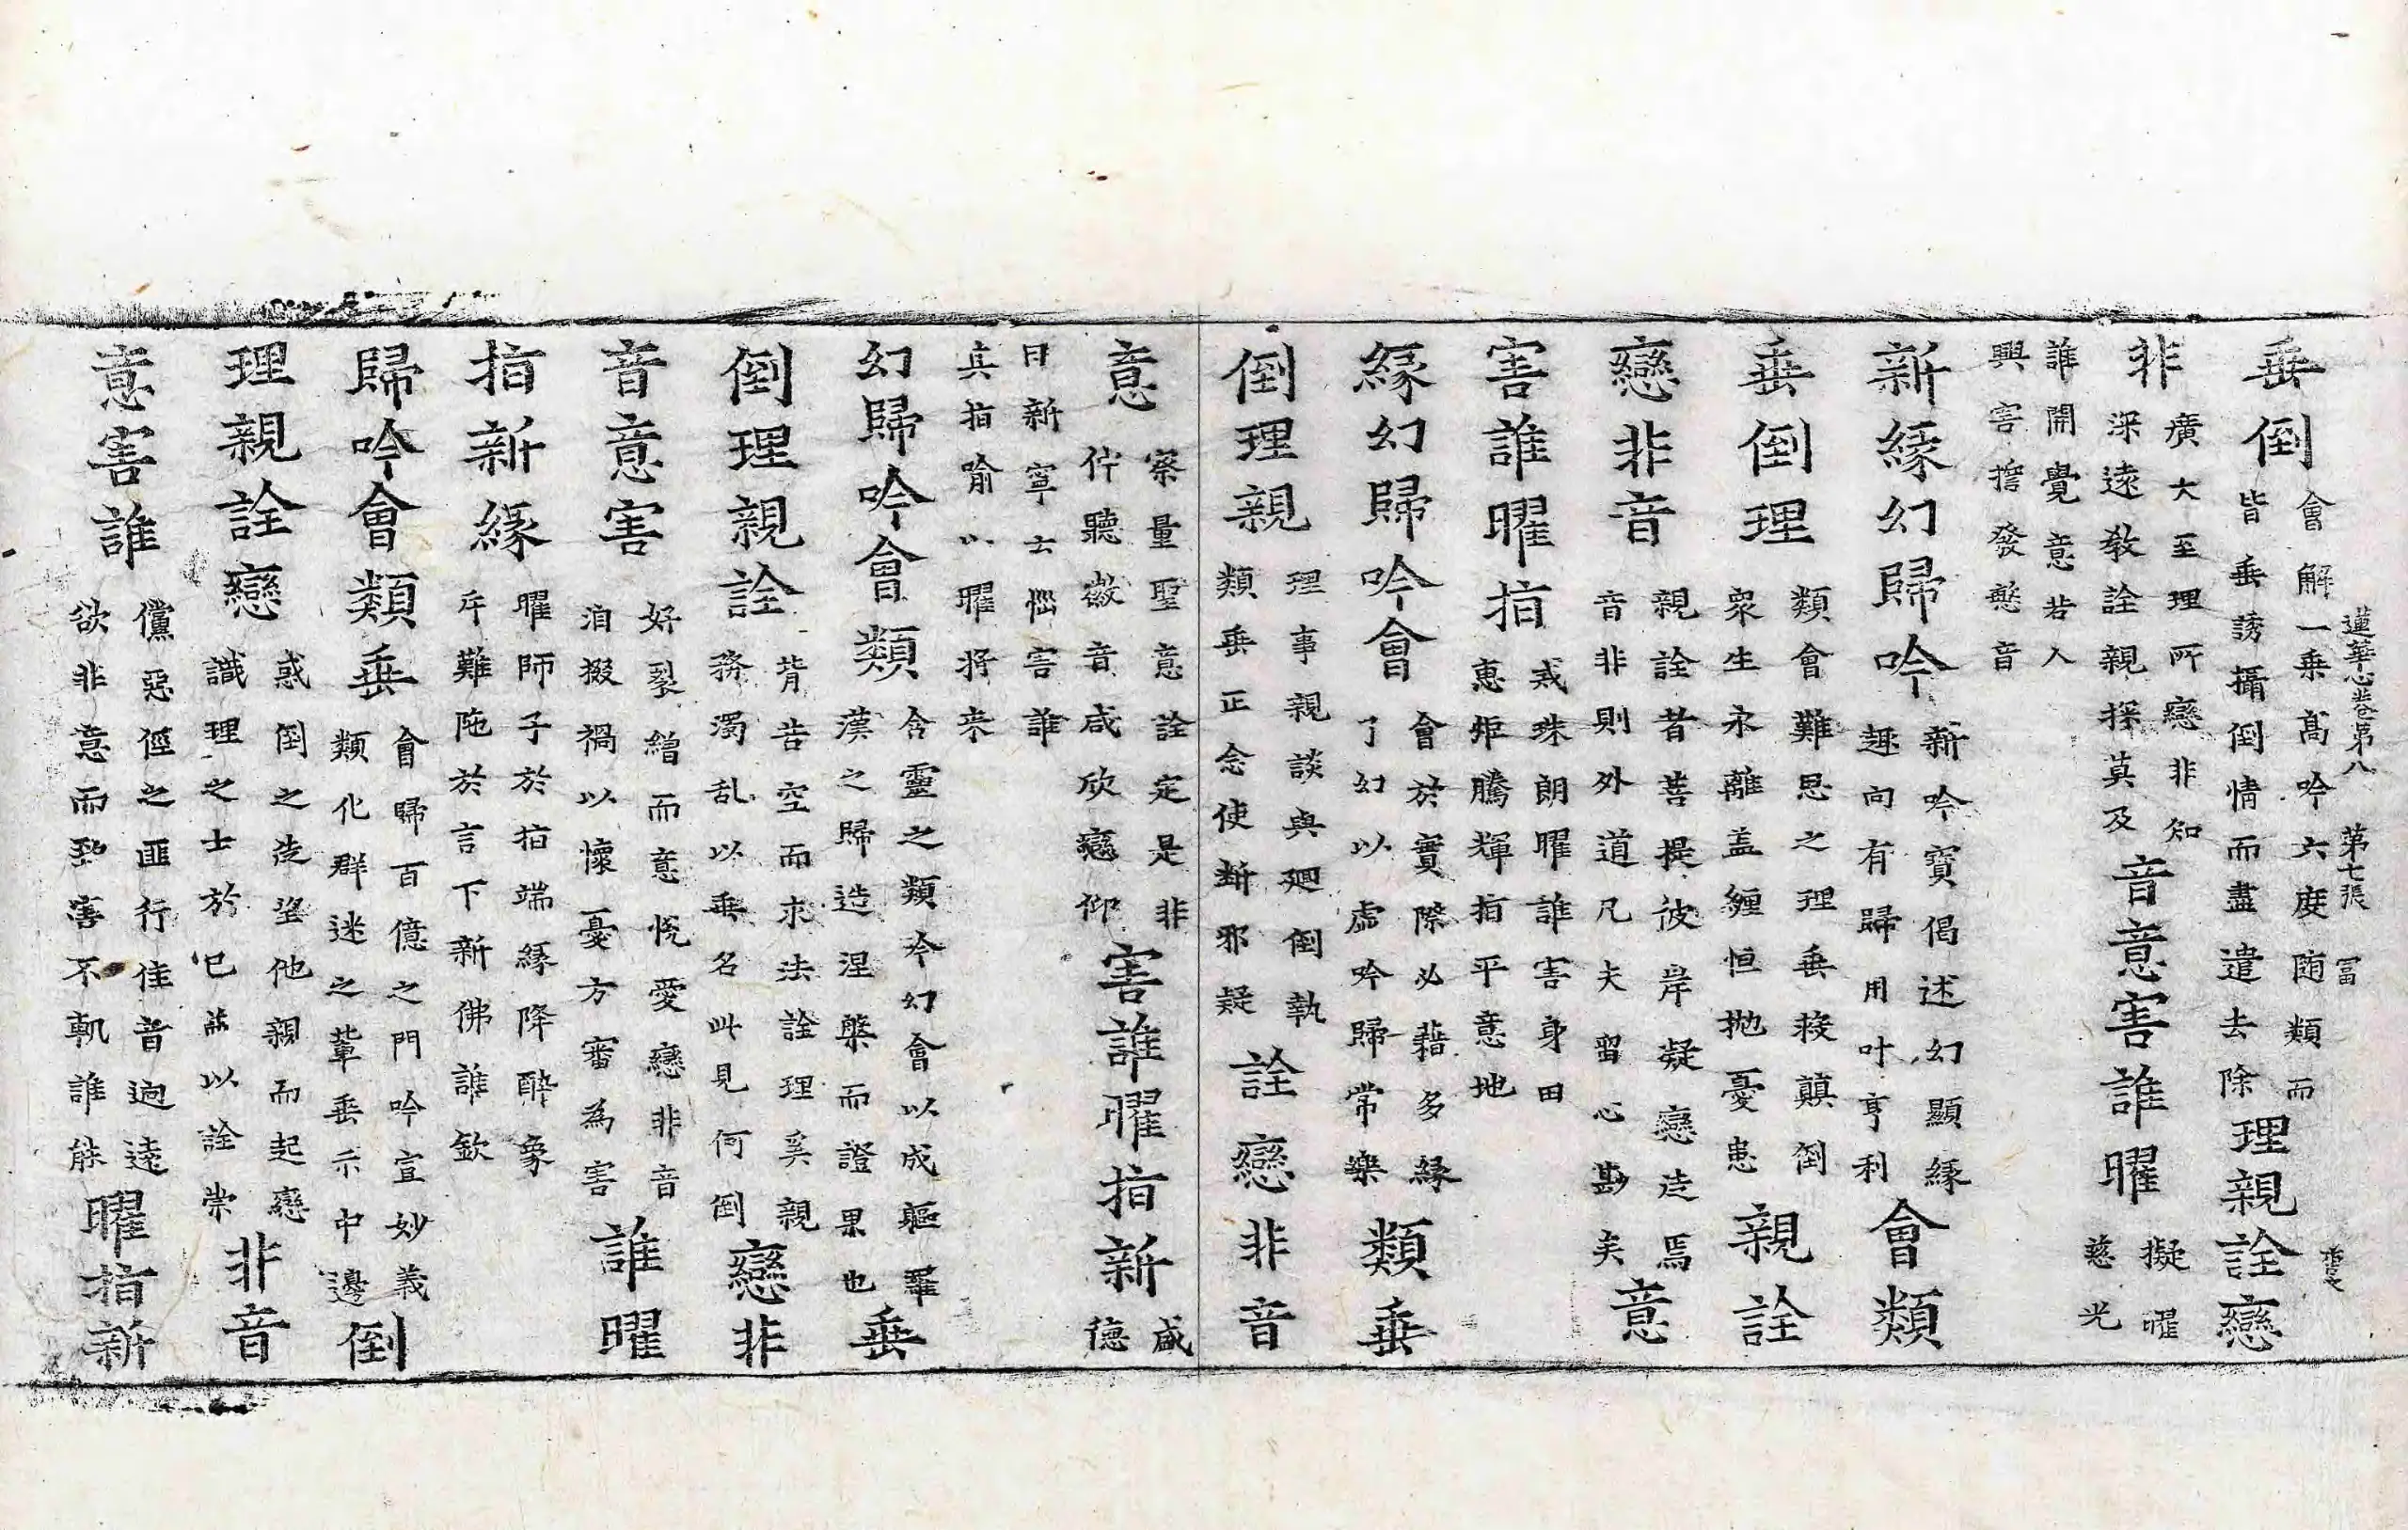 蓮華心卷第八 第七張 冨
垂倒會解一乗髙吟六度随類而皆垂誘攝倒情而盡遣去除理親詮戀
非廣大至理所戀非知深遠教詮親探莫及音意害誰曜擬曜慈光
誰開覺意若人興害擔發慜音
新緣幻歸吟新吟寳偈述幻顯緣趣向有歸用叶亨利會類
垂倒理類會難思之理垂救顛倒衆生永離盖纏恒拋憂患親詮
戀非音親詮者菩提彼岸凝戀迬焉音非則外道凡夫留心尠矣意
害誰曜指戎珠朗曜誰害身田惠炬騰輝指平意地
緣幻歸吟會會於實際必藉多緣了幻以虛吟歸常樂類垂
倒理親理事親談與廻倒執類垂正念使断邪疑詮戀非音
意察量聖意詮定是非佇聽徽音咸欣戀仰害誰曜指新咸德
日新寧士惱害誰真指喻以曜将来
幻歸吟會類含靈之類今幻會以成軀羅漢之歸造涅槃而證果也垂
倒理親詮背告空而求法詮理奚親務濁乱以垂名此見何倒戀非
音意害好裂繒而意悅愛戀非音洎掇禍以懷憂方審為害誰曜
指新緣曜師子於指端緣降醉象斥難陁於言下新佛誰欽
歸吟會類垂會歸百億之門吟宣妙義類化群迷之輩垂示中邊倒
理親詮戀惑倒之迬望他親而起戀識理之士於己以詮崇非音
意害誰儻惡俓之匪行佳音逈遠欲非意而致害不軌誰能曜指新